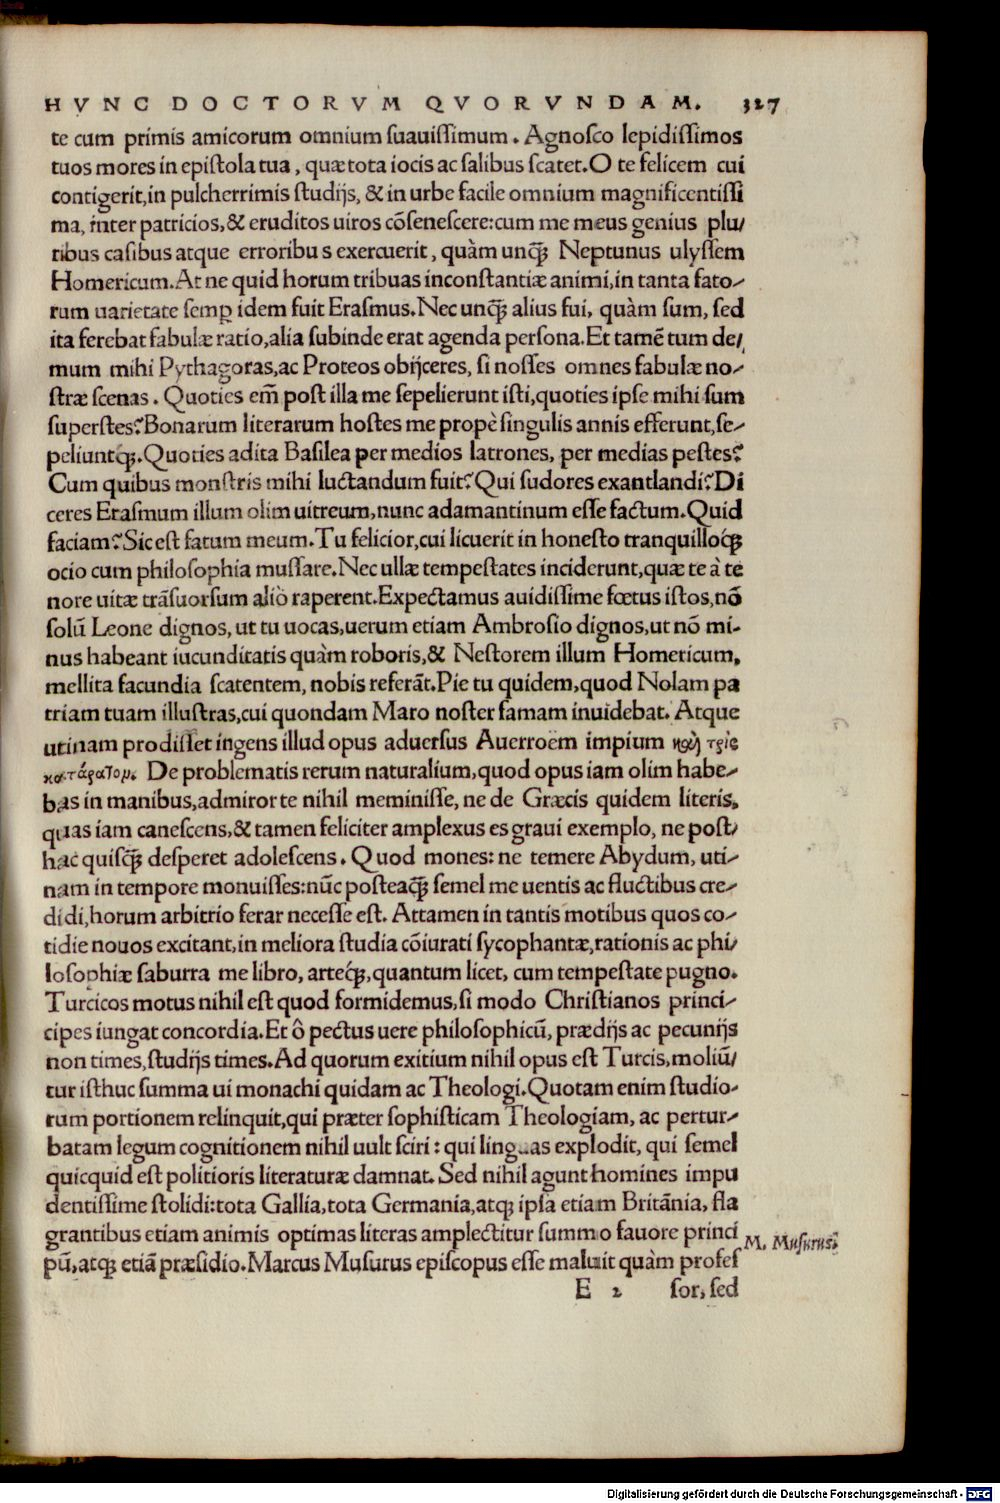 HVNC DOCTORVM QVORVNDAM. 327
te cum primis amicorum omnium suauissimum. Agnosco lepidissimos
tuos mores in epistola tua, quæ tota iocis ac salibus scatet. O te felicem cui
contigerit, in pulcherrimis studijs, & in urbe facile omnium magnificentissi
ma, inter patricios, & eruditos uiros cõsenescere: cum me meus genius plu/
ribus casibus atque erroribus exercuerit, quàm unqȝ Neptunus ulyssem
Homericum. At ne quid horum tribuas inconstantiæ animi, in tanta fato-
rum uarietate semp idem fuit Erasmus. Nec unqȝ alius fui, quàm sum, sed
ita ferebat fabulæ ratio, alia subinde erat agenda persona. Et tamẽ tum de/
mum mihi Pythagoras, ac Proteos obijceres, si nosses omnes fabulæ no-
stræ scenas. Quoties em̃ post illa me sepelierunt isti, quoties ipse mihi sum
superstes? Bonarum literarum hostes me propè singulis annis efferunt, se-
peliuntqȝ. Quoties adita Basilea per medios latrones, per medias pestes?
Cum quibus monstris mihi luctandum fuit? Qui sudores exantlandi? Di
ceres Erasmum illum olim uitreum, nunc adamantinum esse factum. Quid
faciam? Sic est fatum meum. Tu felicior, cui licuerit in honesto tranquilloqȝ
ocio cum philosophia mussare. Nec ullæ tempestates inciderunt, quæ te à te
nore uitæ trãsuorsum aliò raperent. Expectamus auidissime fœtus istos, nõ
solũ Leone dignos, ut tu uocas, uerum etiam Ambrosio dignos, ut nõ mi-
nus habeant iucunditatis quàm roboris, & Nestorem illum Homericum,
mellita facundia scatentem, nobis referãt. Pie tu quidem, quod Nolam pa
triam tuam illustras, cui quondam Maro noster famam inuidebat. Atque
utinam prodisset ingens illud opus aduersus Auerroëm impium καὶ τρὶς
κατάρατομ. De problematis rerum naturalium, quod opus iam olim habe-
bas in manibus, admiror te nihil meminisse, ne de Græcis quidem literis,
quas iam canescens, & tamen feliciter amplexus es graui exemplo, ne post/
hac quisqȝ desperet adolescens. Quod mones: ne temere Abydum, uti-
nam in tempore monuisses: nũc posteaqȝ semel me uentis ac fluctibus cre-
didi, horum arbitrio ferar necesse est. Attamen in tantis motibus quos co-
tidie nouos excitant, in meliora studia cõiurati sycophantæ, rationis ac phi/
losophiæ saburra me libro, arteqȝ, quantum licet, cum tempestate pugno.
Turcicos motus nihil est quod formidemus, si modo Christianos princi-
cipes iungat concordia. Et ô pectus uere philosophicũ, prædijs ac pecunijs
non times, studijs times. Ad quorum exitium nihil opus est Turcis, moliũ/
tur isthuc summa ui monachi quidam ac Theologi. Quotam enim studio-
rum portionem relinquit, qui præter sophisticam Theologiam, ac pertur-
batam legum cognitionem nihil uult sciri: qui linguas explodit, qui semel
quicquid est politioris literaturæ damnat. Sed nihil agunt homines impu
dentissime stolidi: tota Gallia, tota Germania, atqȝ ipsa etiam Britãnia, fla
grantibus etiam animis optimas literas amplectitur summo fauore princi
pũ, atqȝ etiã præsidio. Marcus Musurus episcopus esse maluit quàm profes
M. Musurus.
E 2 sor, sed
Digitalisierung gefördert durch die Deutsche Forschungsgemeinschaft - DFG